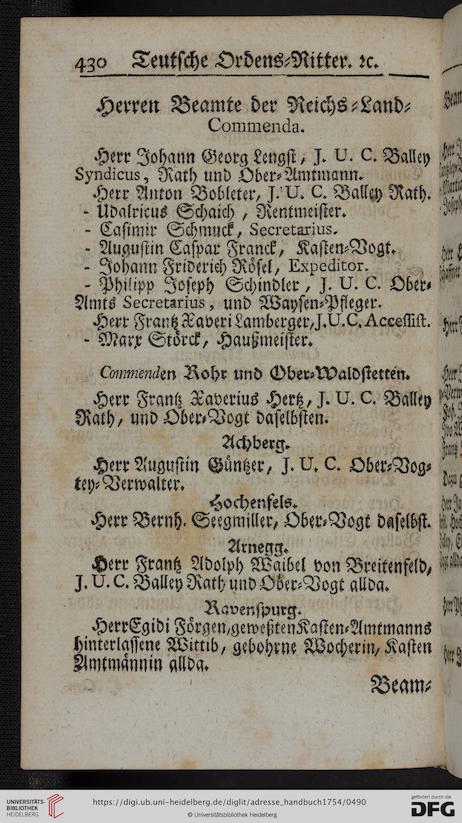 430 Teutsche Ordens-Ritter. ꝛc.
Herren Beamte der Reichs-Land-
Commenda.
Herr Johann Georg Lengst, J. U. C. Balley
Syndicus, Rath und Ober-Amtmann.
Herr Anton Bobleter, J. U. C. Balley Rath.
- Udalricus Schaich, Rentmeister.
- Casimir Schmuck, Secretarius.
- Augustin Caspar Franck, Kasten-Vogt.
- Johann Friderich Rösel, Expeditor.
- Philipp Joseph Schindler, J. U. C. Ober-
Amts Secretarius, und Waysen-Pfleger.
Herr Frantz Xaveri Lamberger, J. U. C. Accessist.
- Marx Störck, Haußmeister.
Commenden Rohr und Ober-Waldstetten.
Herr Frantz Xaverius Hertz, J. U. C. Balley
Rath, und Ober-Vogt daselbsten.
Achberg.
Herr Augustin Güntzer, J. U. C. Ober-Vog-
tey-Verwalter.
Hochenfels.
Herr Bernh. Seegmiller, Ober-Vogt daselbst.
Arnegg.
Herr Frantz Adolph Waibel von Breitenfeld,
J. U. C. Balley Rath und Ober-Vogt allda.
Ravenspurg.
Herr Egidi Förgen, geweßten Kasten-Amtmanns
hinterlassene Wittib, gebohrne Wocherin, Kasten
Amtmännin allda.
Beam-
UNIVERSITÄTS-
BIBLIOTHEK
HEIDELBERG
https://digi.ub.uni-heidelberg.de/diglit/adresse_handbuch1754/0490
© Universitätsbibliothek Heidelberg
gefördert durch die
DFG